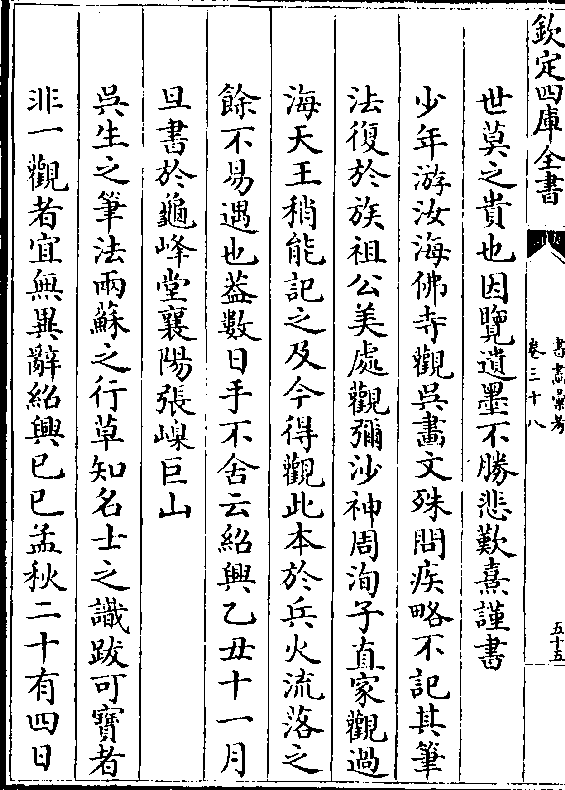 欽定四庫全書
書畫彙考
卷三十八
五十五
世莫之貴也因覽遺墨不勝悲歎熹謹書
少年游汝海佛寺觀吳畫文殊問疾略不記其筆
法復於族祖公美處觀彌沙神周洵子直家觀過
海天王稍能記之及今得觀此本於兵火流落之
餘不易遇也葢數日手不舍云紹興乙丑十一月
旦書於龜峰堂襄陽張嵲巨山
吳生之筆法兩蘇之行草知名士之識跋可寶者
非一觀者宜無異辭紹興已巳孟秋二十有四日